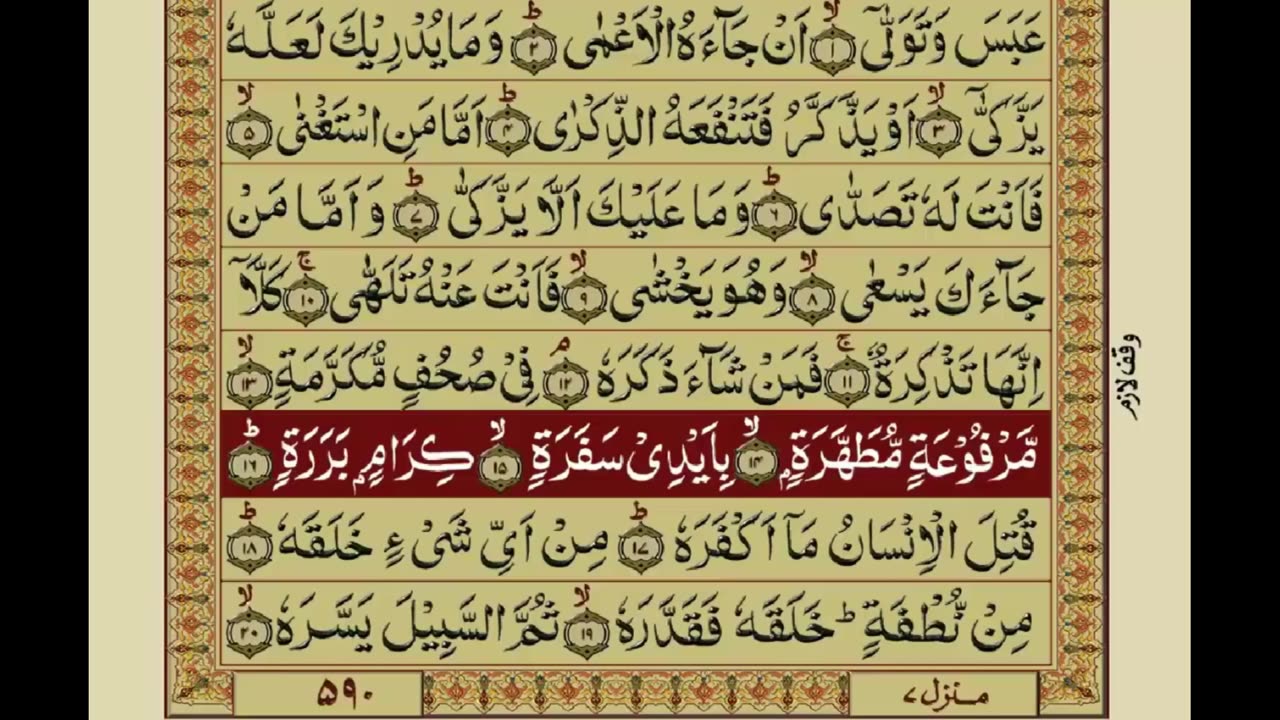 عَبَسَ وَتَوَلّٰىٓ ۙ﴿۱﴾ اَنْ جَآءَهُ الْاَعْمٰى ؕ﴿۲﴾ وَمَا يُدْرِيْكَ لَعَلَّهٗ
يَزَّكّٰىٓ ۙ﴿۳﴾ اَوْ يَذَّكَّرُ فَتَنْفَعَهُ الذِّكْرٰى ؕ﴿۴﴾ اَمَّا مَنِ اسْتَغْنٰى ۙ﴿۵﴾
فَاَنْتَ لَهٗ تَصَدّٰى ؕ﴿۶﴾ وَمَا عَلَيْكَ اَلَّا يَزَّكّٰى ؕ﴿۷﴾ وَاَمَّا مَنْ
جَآءَكَ يَسْعٰى ۙ﴿۸﴾ وَهُوَ يَخْشٰى ۙ﴿۹﴾ فَاَنْتَ عَنْهُ تَلَهّٰى ۚ﴿۱۰﴾ كَلَّاۤ
اِنَّهَا تَذْكِرَةٌ ۚ﴿۱۱﴾ فَمَنْ شَآءَ ذَكَرَهٗ ۘ﴿۱۲﴾ فِيْ صُحُفٍ مُّكَرَّمَةٍ ۙ﴿۱۳﴾
وقف لازم
مَّرْفُوْعَةٍ مُّطَهَّرَةٍۭ ۙ﴿۱۴﴾ بِاَيْدِيْ سَفَرَةٍ ۙ﴿۱۵﴾ كِرَامٍۭ بَرَرَةٍ ؕ﴿۱۶﴾
قُتِلَ الْاِنْسَانُ مَاۤ اَكْفَرَهٗ ؕ﴿۱۷﴾ مِنْ اَيِّ شَيْءٍ خَلَقَهٗ ؕ﴿۱۸﴾
مِنْ نُّطْفَةٍ ؕ خَلَقَهٗ فَقَدَّرَهٗ ۙ﴿۱۹﴾ ثُمَّ السَّبِيْلَ يَسَّرَهٗ ۙ﴿۲۰﴾
منزل ۷
۵۹۰